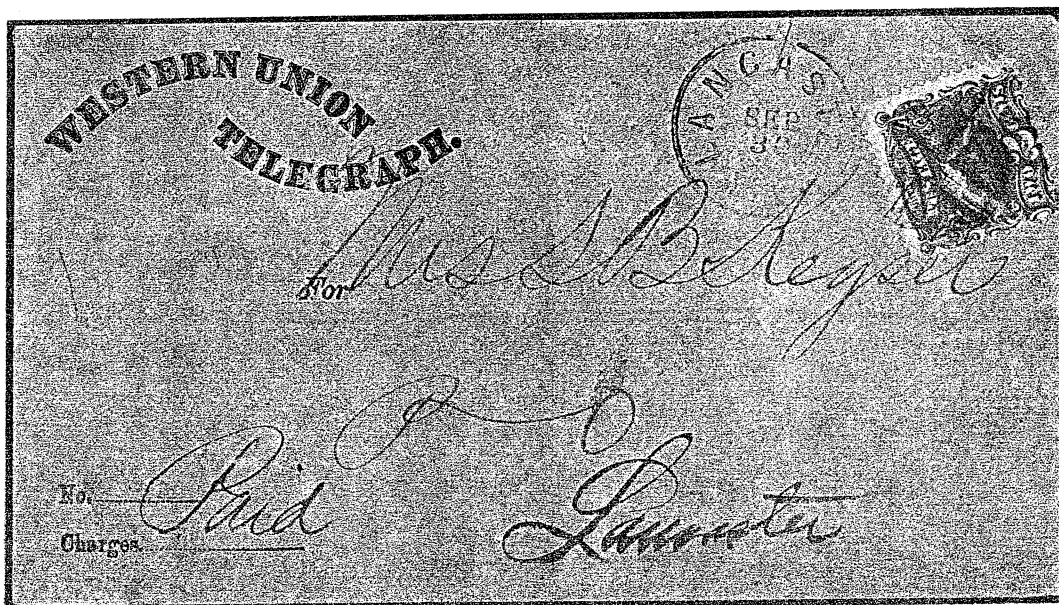 WESTERN UNION
TELEGRAPH.
LANCAS
SEP
TWO
For Mrs S B Keyser
P O
No.
Charges Paid
Lancaster